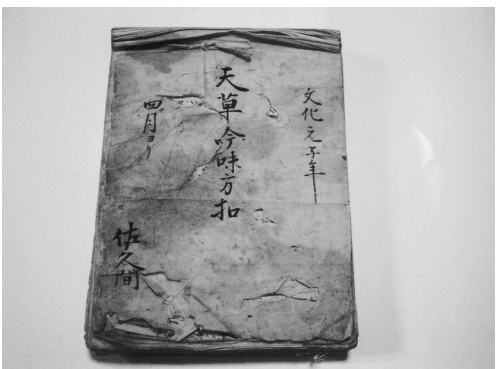 文化元子年
天草吟味方扣
四月ヨリ
佐久間